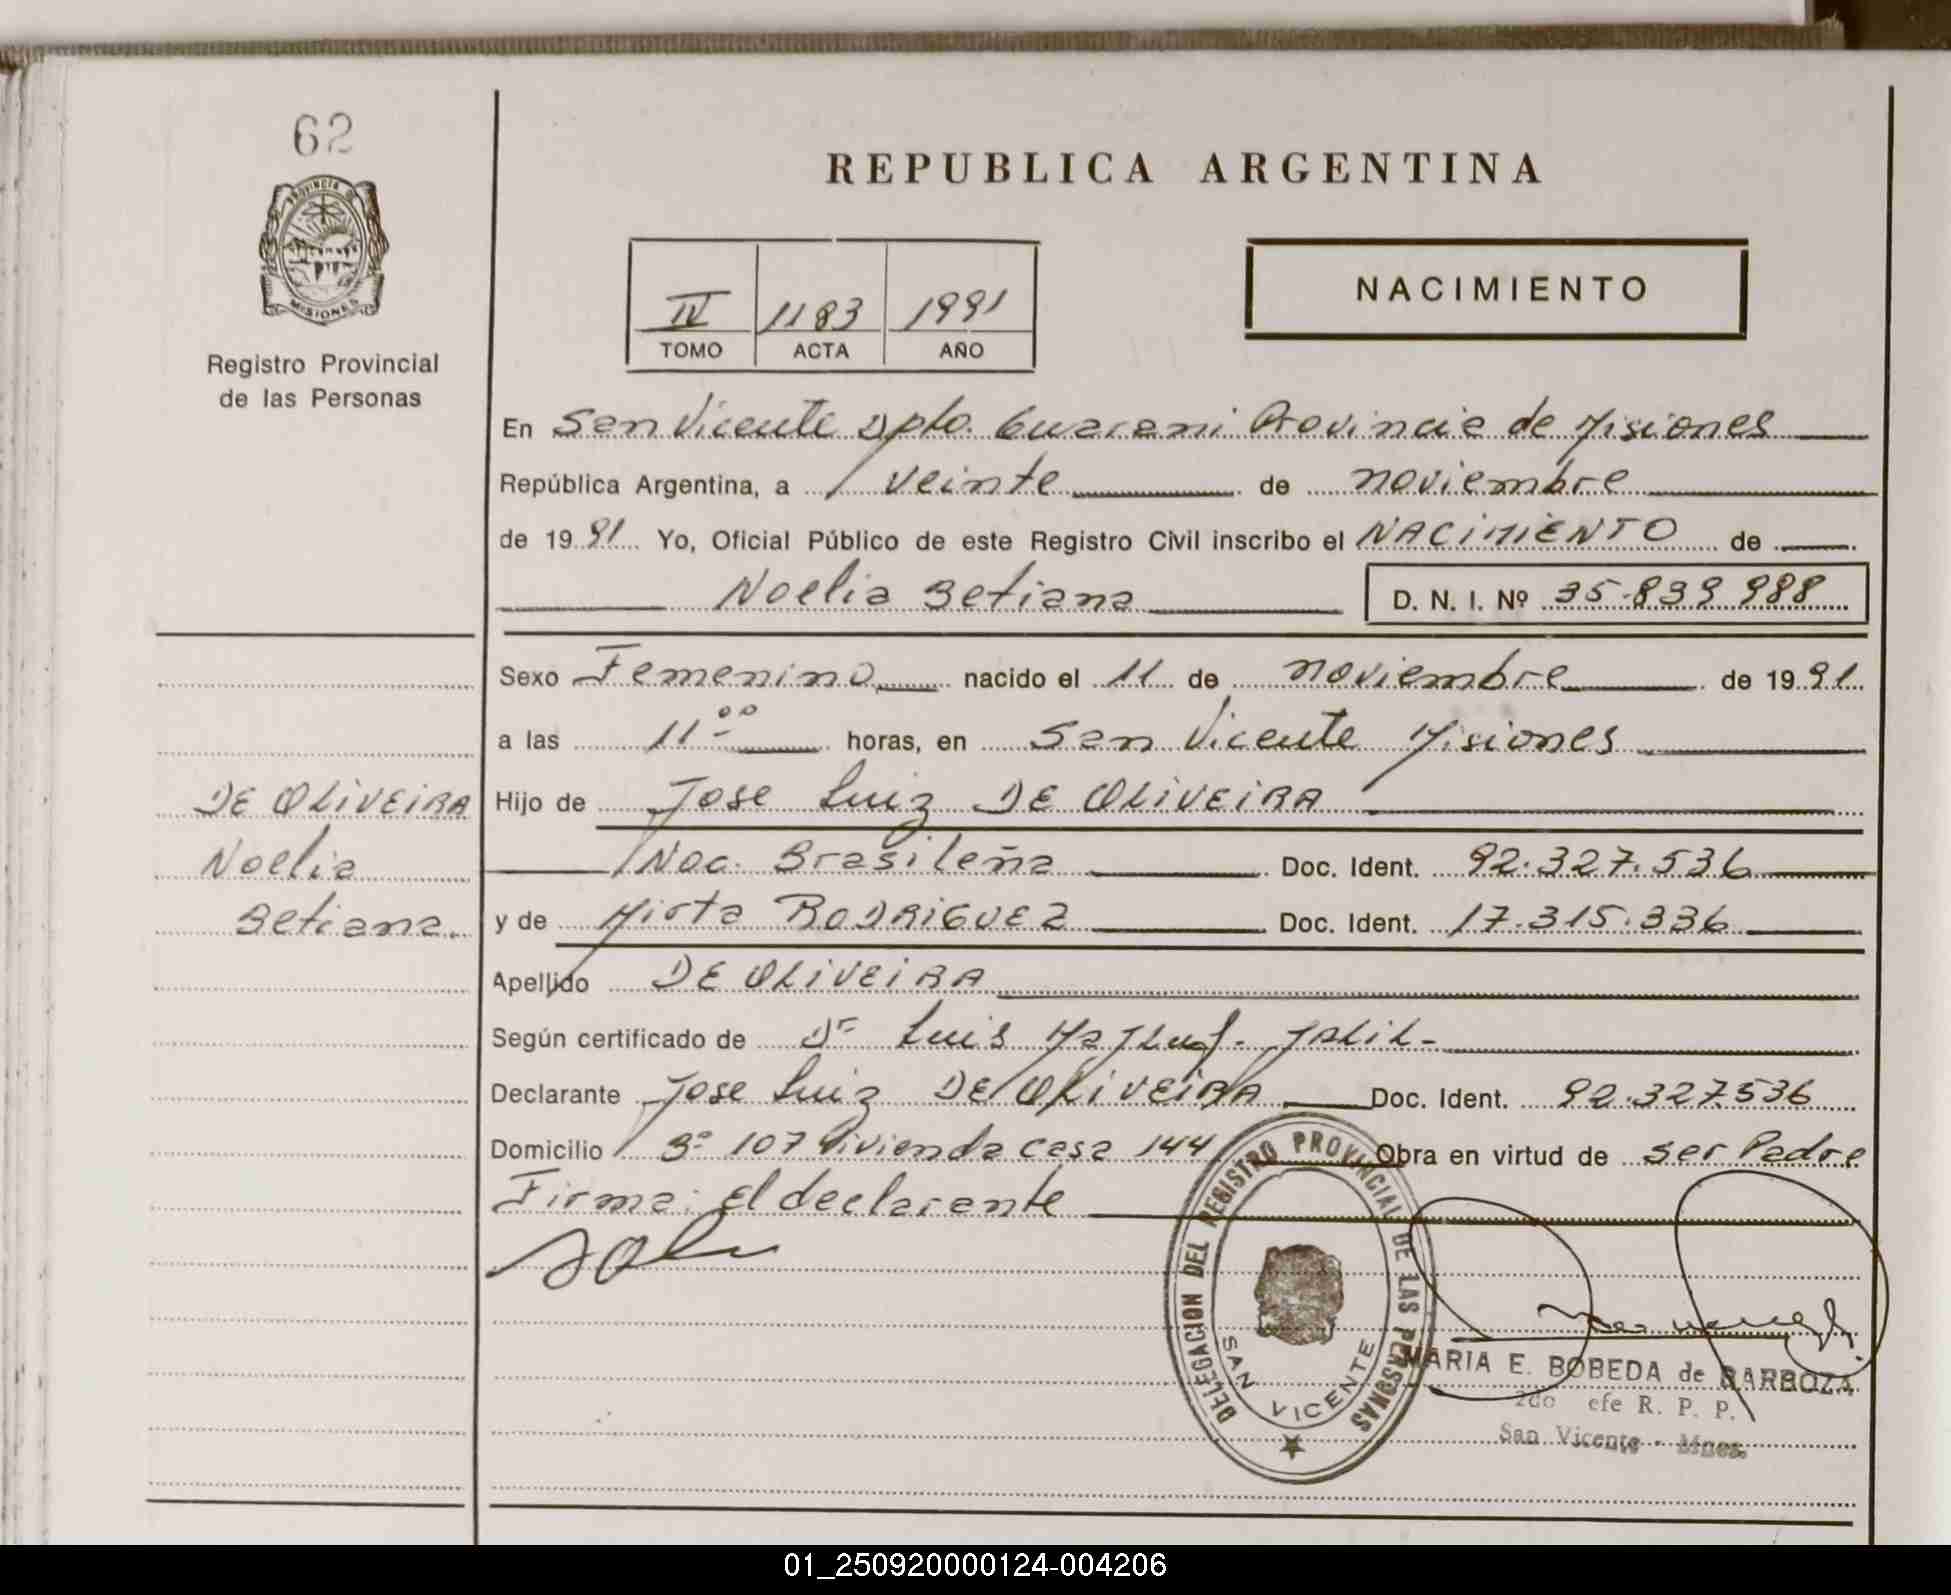 62
PROVINCIA DE
MISIONES
Registro Provincial
de las Personas
REPUBLICA ARGENTINA
IV 1183 1991
TOMO ACTA AÑO
NACIMIENTO
En San Vicente Dpto. Guarani Provincia de Misiones
República Argentina, a veinte de noviembre
de 1991 Yo, Oficial Público de este Registro Civil inscribo el NACIMIENTO de
Noelia Betiana D. N. I. Nº 35.839.988
Sexo Femenino nacido el 11 de noviembre de 1991
a las 11 00 horas, en San Vicente Misiones
DE OLIVEIRA
Noelia
Betiana.
Hijo de Jose Luiz DE OLIVEIRA
Nac. Brasileña Doc. Ident. 92.327.536
y de Mirta RODRIGUEZ Doc. Ident. 17.315.336
Apellido DE OLIVEIRA
Según certificado de Dr Luis JALIL-
Declarante Jose Luiz DE OLIVEIRA Doc. Ident. 92.327.536
Domicilio Bº 107 Vivienda casa 144 Obra en virtud de ser Padre
Firma: El declarante
DELEGACION DEL REGISTRO PROVINCIAL DE LAS PERSONAS
SAN VICENTE
MARIA E. BOBEDA de BARBOZA
2do efe R. P. P.
San Vicente - Mnes.
01_250920000124-004206